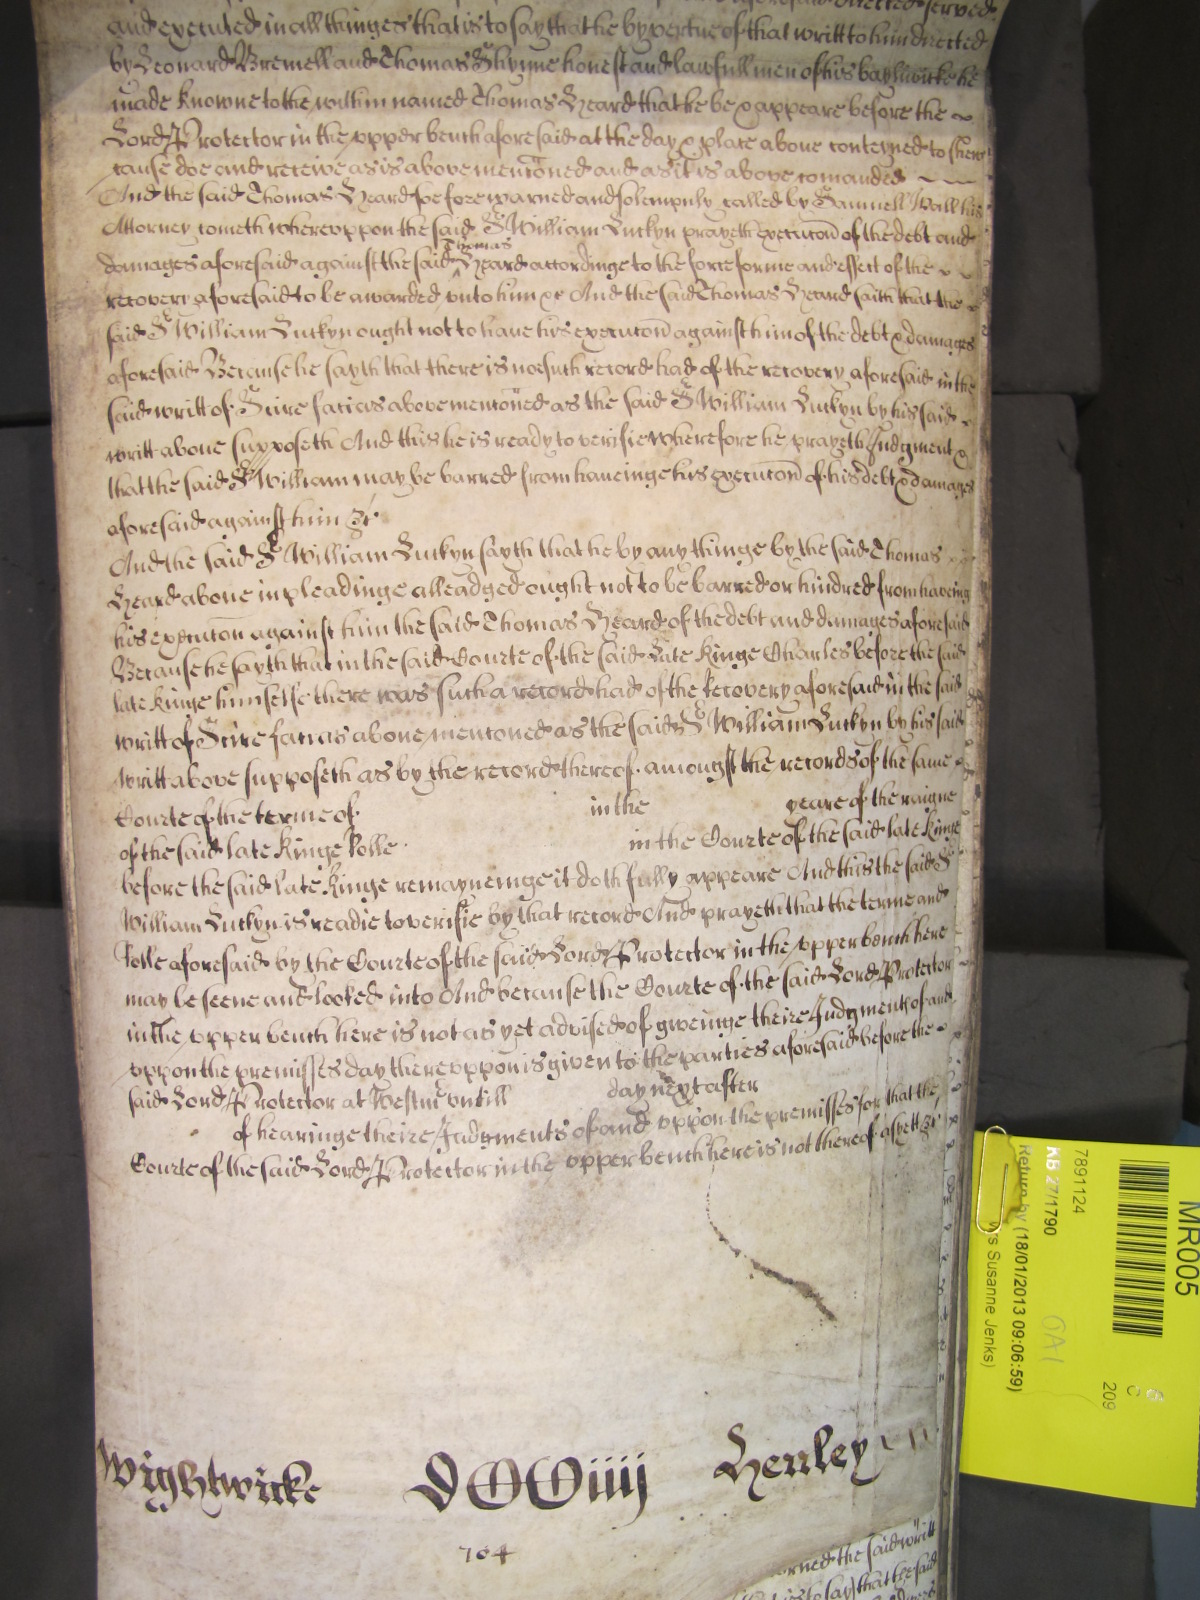 aforesaid directed served
and executed in all thinges that is to say that he by vertue of that writt to him directed
by Leonard Bremell and Thomas Skynne honest and lawfull men of his baylywicke he
made knowne to the within named Thomas Heard that he be & appeare before the
Lord Protector in the upper bench aforesaid at the day & place above conteyned to shew
cause doe and receive as is above menc̃oned and as it is above comanded
And the said Thomas Heard so forewarned and solempnly called by Samuell Wall his
Attorney cometh whereuppon the said Sr William Luckyn prayeth execuc̃on of the debt and
Thomas
damages aforesaid against the said ^ Heard accordinge to the force forme and effect of the
recovery aforesaid to be awarded unto him &c And the said Thomas Heard saith that the
said Sr William Luckyn ought not to haue his execuc̃on against him of the debt & damages
aforesaid Because he sayth that there is noe such record had of the recovery aforesaid in the
said writt of Scire facias above menc̃oned as the said Sr William Luckyn by his said
writt aboue supposeth And this he is ready to verifie wherefore he prayeth Judgment &
that the said Sr William may be barred from haueinge his execuc̃on of his debt & damages
aforesaid against him &c
And the said Sr William Luckyn sayth that he by any thinge by the said Thomas
Heard aboue in pleadinge alleadged ought not to be barred or hindred from haveing
his execuc̃on against him the said Thomas Heard of the debt and damages aforesaid
Because he sayth that in the said Courte of the said late Kinge Charles before the said
late Kinge himselfe there was such a record had of the Recovery aforesaid in the said
writt of Scire facias aboue menc̃oned as the said Sr William Luckyn by his said
writt above supposeth as by the record thereof amongst the records of the same
Courte of the terme of in the yeare of the raigne
of the said late Kinge Rolle in the Courte of the said late Kinge
before the said late Kinge remayneinge it doth fully appeare And this the said Sr
William Luckyn is readie to verifie by that record And prayeth that the terme and
Rolle aforesaid by the Courte of the said Lord Protector in the upper bench here
may be seene and looked into And because the Courte of the said Lord Protector
in the upper bench here is not as yet advised of giveinge theire Judgments of and
uppon the premisses day thereuppon is given to the parties aforesaid before the
said Lord Protector at Westmr untill day next after
of hearinge theire Judgments of and uppon the premisses for that the
Courte of the said Lord Protector in the upper bench here is not thereof as yett &c
Wightwicke DCCiiij Henley
704
the said writt
is to say) that the said
MR005
209
7891124
KB 27/1790
Return by (18/01/2013 09:06:59)
Susanne Jenks)